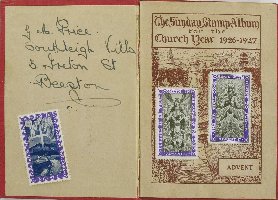 G. A. Price.
Southleigh Villa
3 Ireton St
Beeston
The Sunday Stamp Album
for the
Church Year 1926-1927
ADVENT